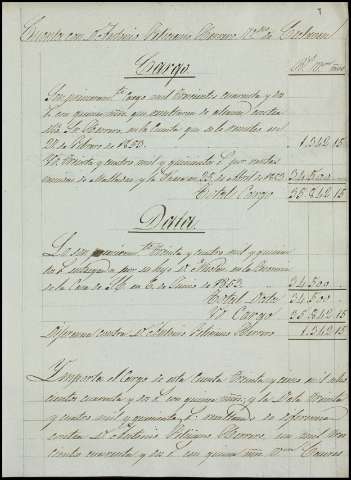 Cuenta con Dn. Antonio Feliciano Herrero Vno. de
Cargo.
Son primeramte. cargo mil trescientos cuarenta y dos
r. con quince mrs. que resultaron de alcance contra
dho. Sr. Herrero en la Cuenta que se le remitió en
28 de Febrero de 1853 1.342.15
Yd. treinta y cuatro mil y quinientos r. por rentas
y la en 25 de Abril de 1853 34.500
Total Cargo 35.842.15
Data.
Lo son primeramte. treinta y cuatro mil y quinien
tos r. entregados por su hijo Dn. en la Tesoreria
de la Casa de S.E. en 6 de Junio de 1853 34.500
Total Data 34.500
Yd. Cargo 35.842.15
Diferencia contra Dn. Antonio Feliciano Herrero 1.342.15
Ymporta el Cargo de esta Cuenta treinta y cinco mil ocho
cientos cuarenta y dos r. con quince mrs.; y la Data treinta
y cuatro mil y quinientos r. resultando de diferencia
contra Dn. Antonio Feliciano Herrero, un mil tres
cientos cuarenta y dos r. con quince mrs. vellon